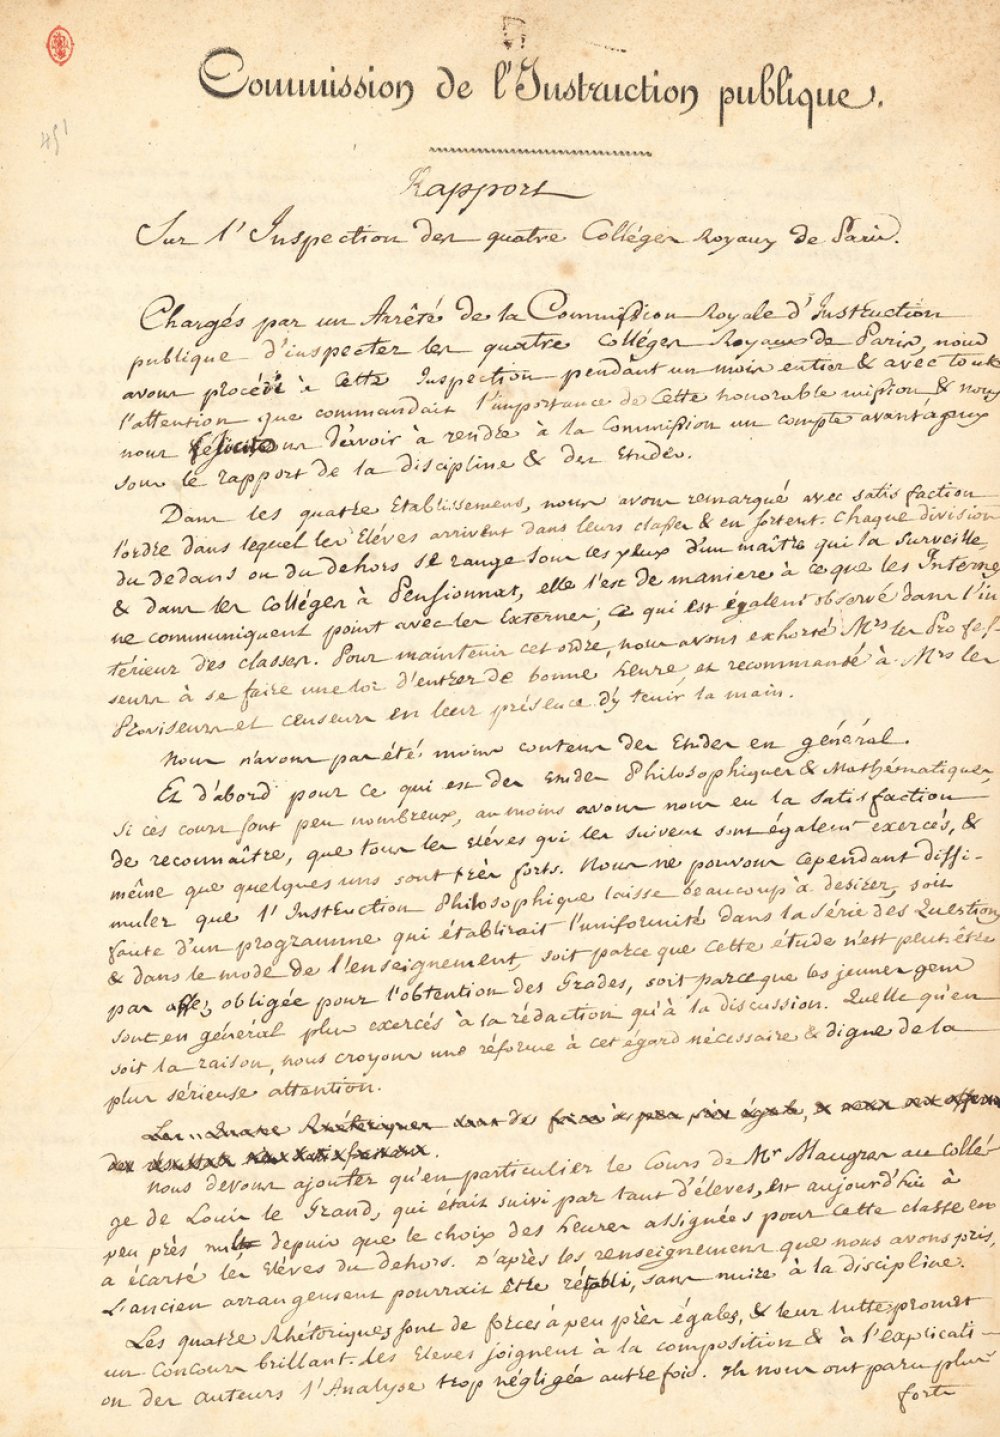 451
Commission de l'Instruction publique.
Rapport
Sur l'Inspection des quatre Colléges Royaux de Paris.
Chargés par un Arrêté de la Commission Royale d'Instruction
publique d'inspecter les quatre Colléges Royaux de Paris, nous
avons procédé à cette Inspection pendant un mois entier & avec toute
l'attention que commandait l'importance de cette honorable mission, & nous
nous félicitons d'avoir à rendre à la Commission un compte avantageux
sous le rapport de la discipline & des Etudes.
Dans les quatre Etablissemens, nous avons remarqué avec satisfaction
l'ordre dans lequel les Eléves arrivent dans leurs classes & en sortent. Chaque division
du dedans ou du dehors se range sous les yeux d'un maître qui la surveille,
& dans les Colléges à Pensionnat, elle l'est de maniere à ce que les Internes
ne communiquent point avec les Externes; ce qui est également observé dans l'in
térieur des classes. Pour maintenir cet ordre, nous avons exhorté Mrs les Profes-
seurs à se faire une loi d'entrer de bonne heure, et recommandé à Mrs les
Proviseurs et Censeurs en leur présence d'y tenir la main.
Nous n'avons pas été moins contens des Etudes en général.
Et d'abord pour ce qui est des Etudes Philosophiques & Mathématiques,
si ces cours sont peu nombreux, au moins avons nous eu la satisfaction
de reconnaître, que tous les eléves qui les suivent sont également exercés, &
même que quelques uns sont très forts. Nous ne pouvons cependant dissi-
muler que l'Instruction Philosophique laisse beaucoup à desirer, soit
faute d'un programme qui établirait l'uniformité dans la série des Questions
& dans le mode de l'enseignement, soit parce que cette étude n'est peut-être
pas assez obligée pour l'obtention des Grades, soit parce que les jeunes gens
sont en général plus exercés à la rédaction qu'à la discussion. Quelle qu'en
soit la raison, nous croyons une réforme à cet égard nécessaire & digne de la
plus sérieuse attention.
Les quatre Rhétoriques sont des forces à peu près égales, &
des résultats satisfaisans.
Nous devons ajouter qu'en particulier le Cours de Mr Maugras au collé
ge de Louis le Grand, qui était suivi par tant d'éleves, est aujourd'hui à
peu près nul depuis que le choix des heures assignées pour cette classe en
a écarté les Eléves du dehors. D'après les renseignemens que nous avons pris,
l'ancien arrangement pourrait être rétabli, sans nuire à la discipline.
Les quatre Rhétoriques sont de forces à peu près égales, & leur lutte promet
un Concours brillant. Les Eleves joignent à la composition & à l'explicati-
on des auteurs l'Analyse trop négligée autrefois. Ils nous ont paru plus
forts